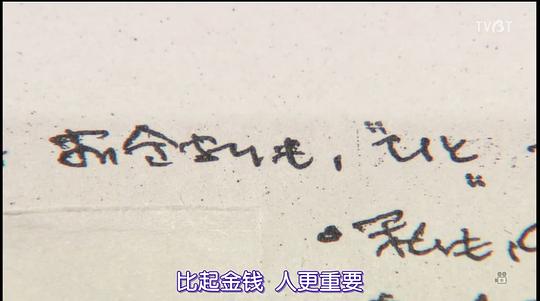 TVBT
お金よりも、"ひと"
・私も、
比起金钱 人更重要